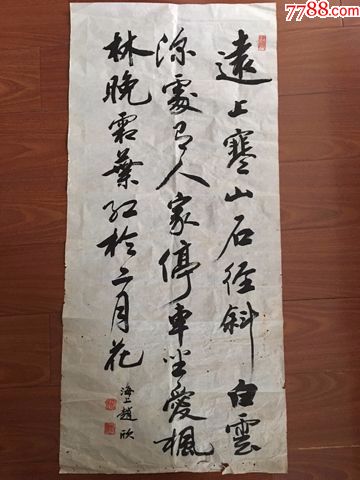 7788.com
遠上寒山石徑斜白雲
深處有人家停車坐愛楓
林晚霜葉紅於二月花
海上趙欣